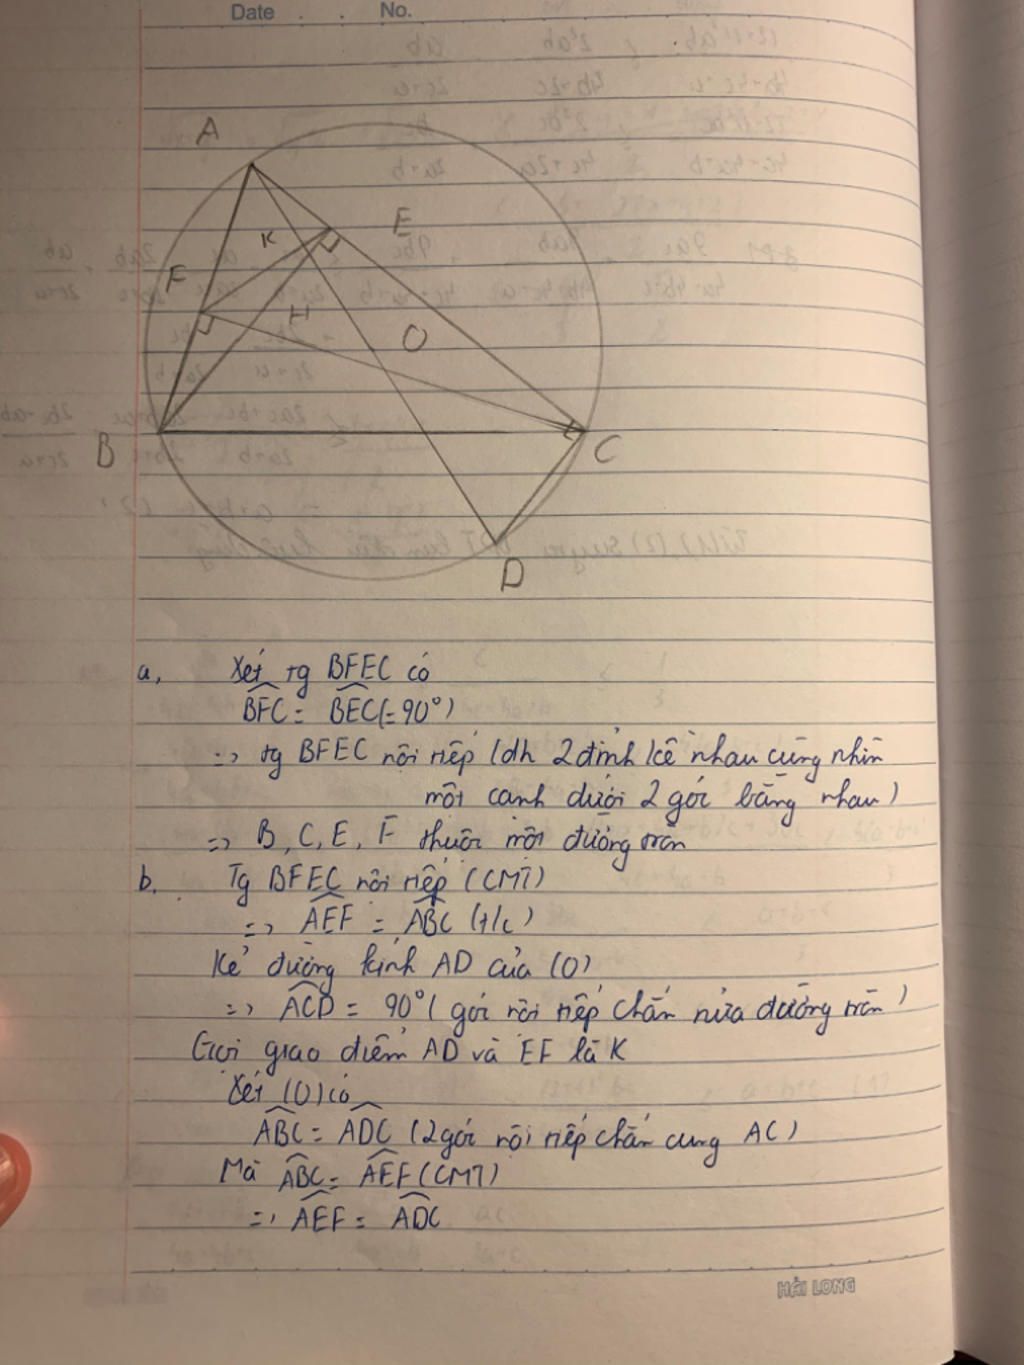 Date . . No.
A
E
K
F
H
O
B
C
D
a, Xét tg BFEC có
BFC = BEC (= 90°)
=> tg BFEC nội tiếp (dh 2 đỉnh kề nhau cùng nhìn
một cạnh dưới 2 góc bằng nhau)
=> B, C, E, F thuộc một đường tròn
b. Tg BFEC nội tiếp (CMT)
=> AEF = ABC (t/c)
Kẻ đường kính AD của (O)
=> ACD = 90° (góc nội tiếp chắn nửa đường tròn)
Gọi giao điểm AD và EF là K
Xét (O) có
ABC = ADC (2 góc nội tiếp chắn cung AC)
Mà ABC = AEF (CMT)
=> AEF = ADC
HẢI LONG